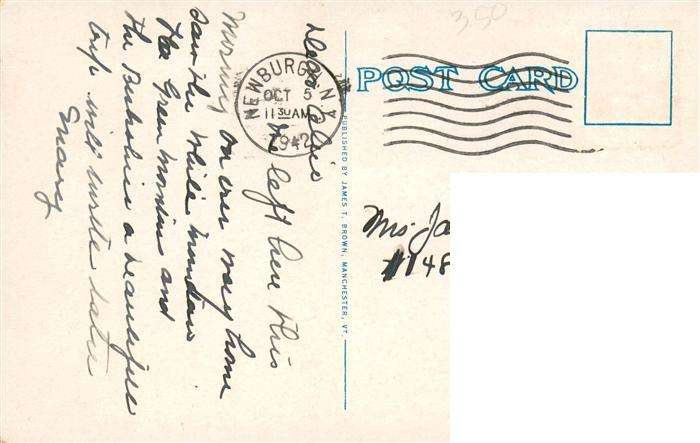 350
POST CARD
NEWBURG N.Y.
OCT 5
11 30 AM
1942
PUBLISHED BY JAMES T. BROWN, MANCHESTER, VT.
Dear
We left here this
Morning on our way home
saw the White Mountains
the Green Mountains and
the Berkshire a beautiful
trip will write later
Mrs. Ja
148